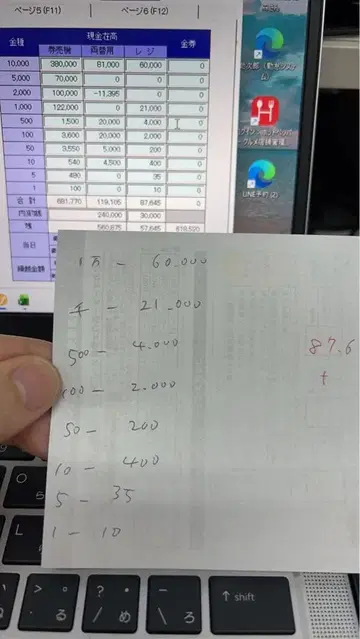 ページ5(F11) ページ6(F12)
金種 現金在高 金券
券売機 両替用 レジ
10,000 380,000 81,000 60,000 0
5,000 70,000 0
2,000 100,000 -11,395 0
1,000 122,000 0 21,000 0
500 1,500 20,000 4,000 0
100 3,600 20,000 2,000 0
50 3,550 5,000 200 0
10 540 4,500 400 0
5 480 0 35 0
1 100 0 10 0
合計 681,770 119,105 87,645 0
240,000 30,000
残 560,875 57,645 618,520
当日
繰越金額
LINE予約 (2)
1万 - 60.000
千 - 21.000
500 - 4.000
100 - 2.000
50 - 200
10 - 400
5 - 35
1 - 10
87.6
+
O
L
る
め
ろ
shift